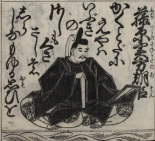 藤原実方朝臣
かくとだに
えやは
いぶきの
さしも
しらじな
もゆるおもひを